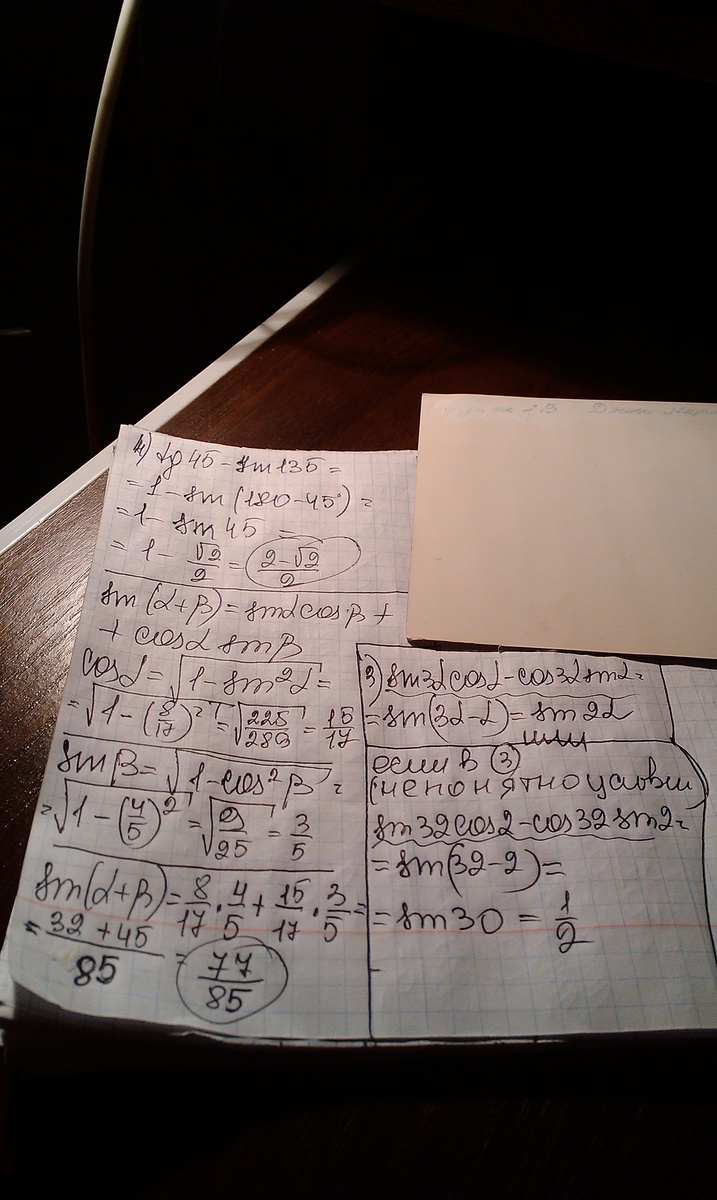 4) tg 45 - sin 135 =
= 1 - sin (180 - 45°) =
= 1 - sin 45 =
= 1 - √2/2 = (2-√2)/2
sin (α+β) = sinα cosβ +
+ cosα sinβ
cosα = √(1 - sin²α) =
= √(1 - (8/17)²) = √(225/289) = 15/17
sinβ = √(1 - cos²β) =
= √(1 - (4/5)²) = √(9/25) = 3/5
sin(α+β) = 8/17 · 4/5 + 15/17 · 3/5 =
= (32 + 45)/85 = 77/85
3) sin3α cosα - cos3α sinα =
= sin(3α - α) = sin 2α
или
если в ③
(непонятно условие)
sin32 cos2 - cos32 sin2 =
= sin(32-2) =
= sin 30 = 1/2